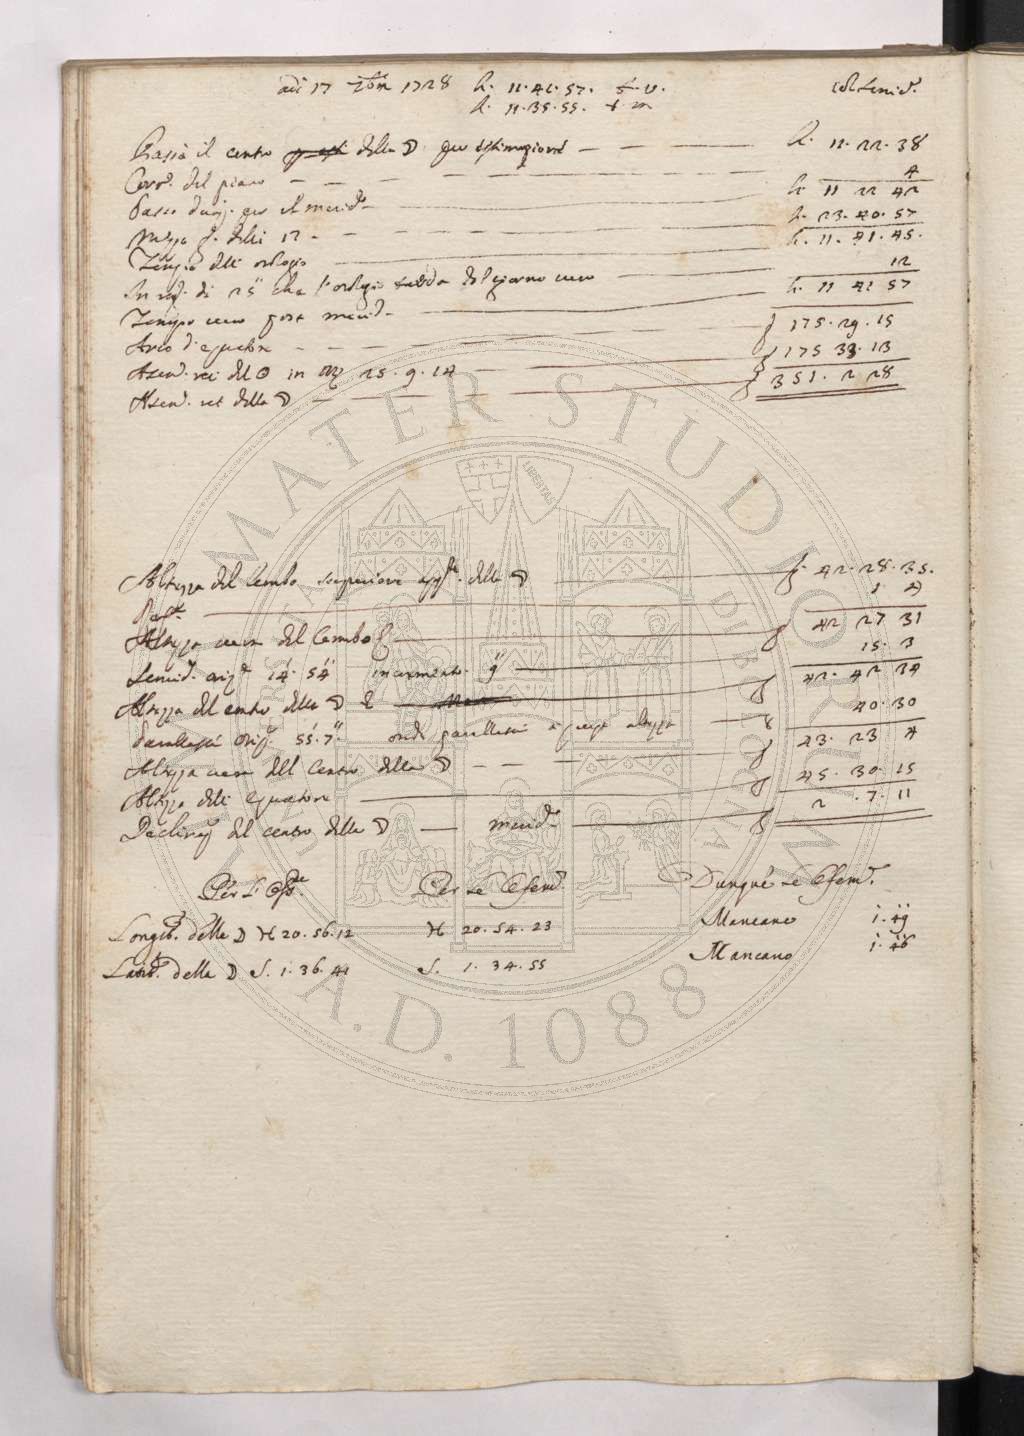 adi 17 7bre 1728 h. 11.41.57. t.v. col Semid.
h. 11.35.55. t. m
Passò il centro della ☽ per estimazione h. 11.22.38
Corr. del piano 4
Passò per il merid. h 11 22 42
Mezzo g. delli 17 h. 23.40.57
Tempo dell orologio h. 11.41.45.
In rag. di 25" che l'orologio tarda del giorno vero 12
Tempo vero post merid. h 11 41 57
Arco d'equatore 175.29.15
Ascen. ret. del ☉ in ♍ 25.9.14 175 33.13
Ascen. ret della ☽ 351.2 28
Altezza del lembo superiore app. della ☽ 42.28.35.
1 4
Altezza vera del lembo 42 27 31
Semid. oriz. 14'.54" incremento 9" 15.3
Altezza del centro della ☽ 42.42 34
Parallasse oriz. 55.7" onde parallasse a questa altezza 40.30
Altezza vera del centro della ☽ 43.23 4
Altezza dell equatore 45.30.15
Declinaz. del centro della ☽ merid. 2.7.11
Per l'Oss. Per le Efem. Dunque le Efem.
Longit. della ☽ ♓ 20.56.12 ♓ 20.54.23 Mancano 1'.49"
Latit. della ☽ S. 1.36.41 S. 1.34.55 Mancano 1'.46"
ALMA MATER STUDIORUM
A.D. 1088
LIBERTAS